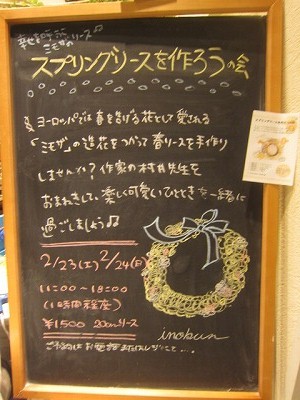 幸せを呼ぶ
ミモザのリース♫
スプリングリースを作ろうの会
ヨーロッパでは春を告げる花として愛される
「ミモザ」の造花をつかって春リースを手作り
しませんか？作家の村井先生を
おまねきして、楽しく可愛いひとときを一緒に
過ごしましょう♫
2/23(土) 2/24(日)
11:00〜18:00
(1時間程度)
¥1500 20cmリース
inobun
ご予約は お電話またはレジにて...。